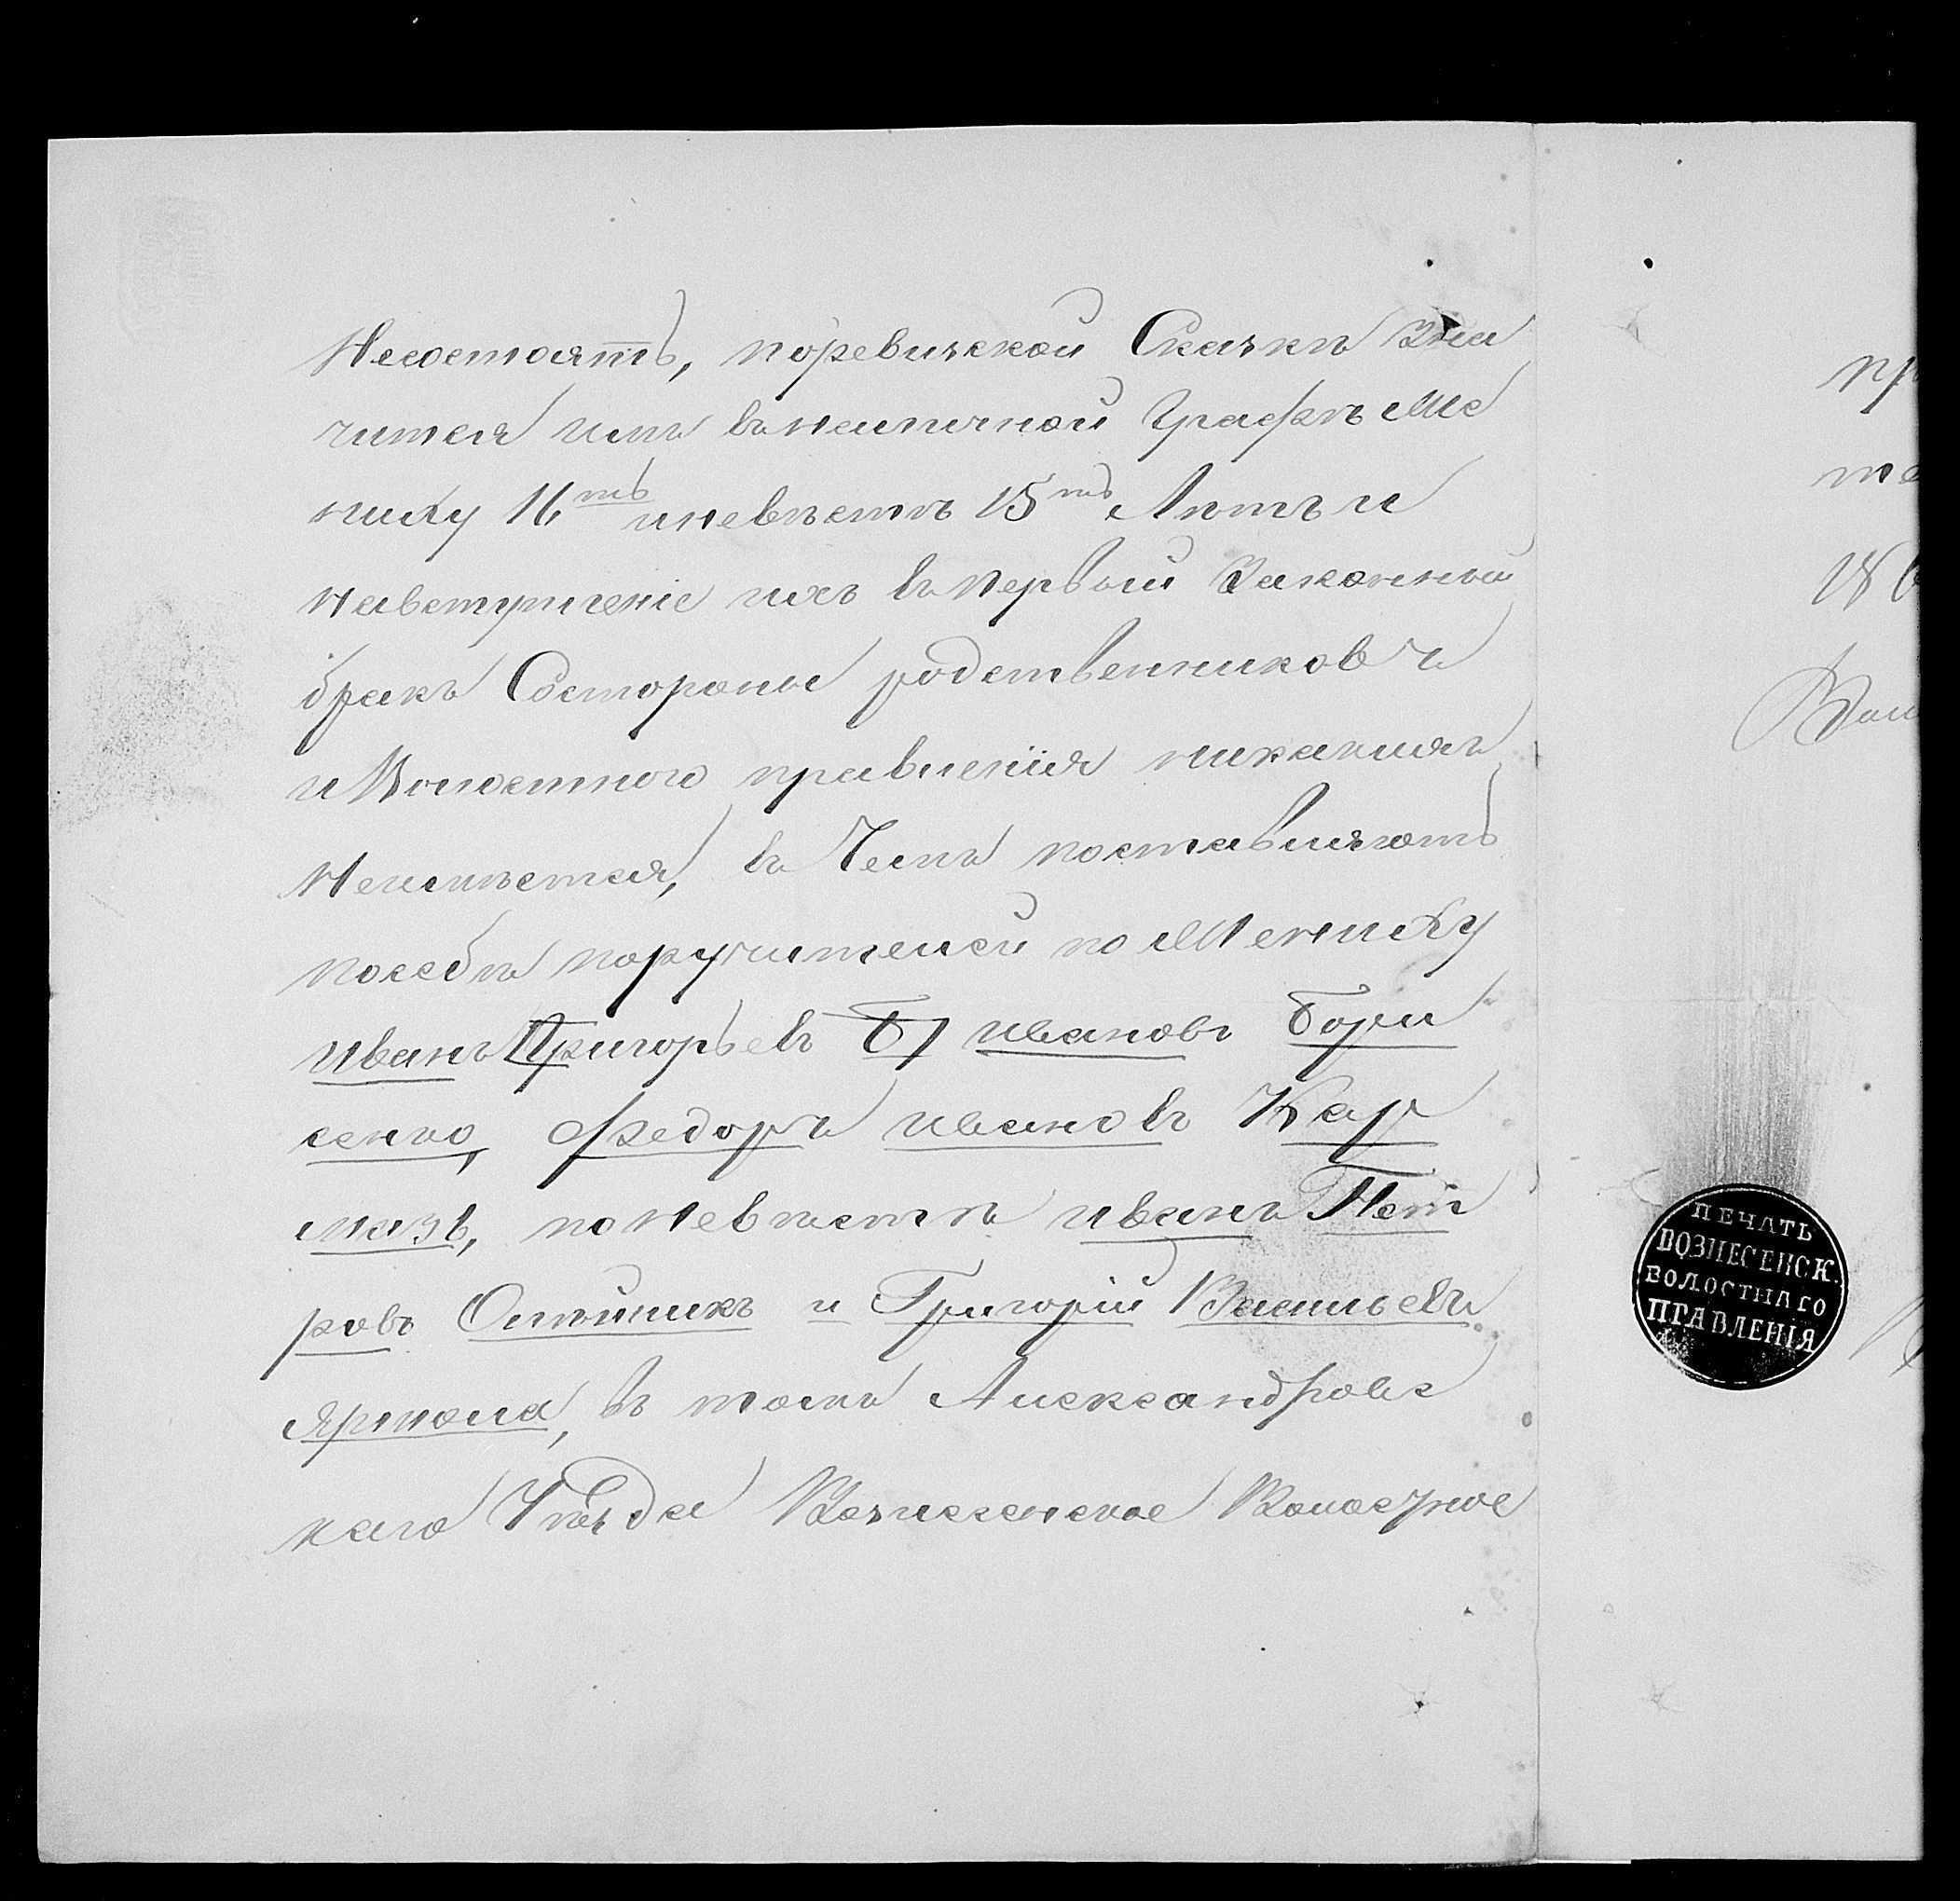 Несостоятъ, поревизской Сказкѣ Зна
чится имъ въ наличной Графѣ Же
ниху 16тъ иневѣстѣ 15тъ Лѣтъ и
навступленіе ихъ въ Первый Законный
бракъ Состороны родственниковъ
и Волостного правленія никакихъ
Неимѣется, въ Чемъ поставляютъ
посебѣ поручителей по Жениху
иванъ Григорьевъ иванов Бори
сенко, Федоръ ивановъ Кар
мазь, по Невѣстѣ иванъ Пет
ровъ Олѣйникъ и Григорій Васильевъ
Ярмола, въ томъ Александровс
каго Уѣзда Вознесенское Волостное
пр
ПЕЧАТЬ
ВОЗНЕСЕНСК.
ВОЛОСТНАГО
ПРАВЛЕНІЯ